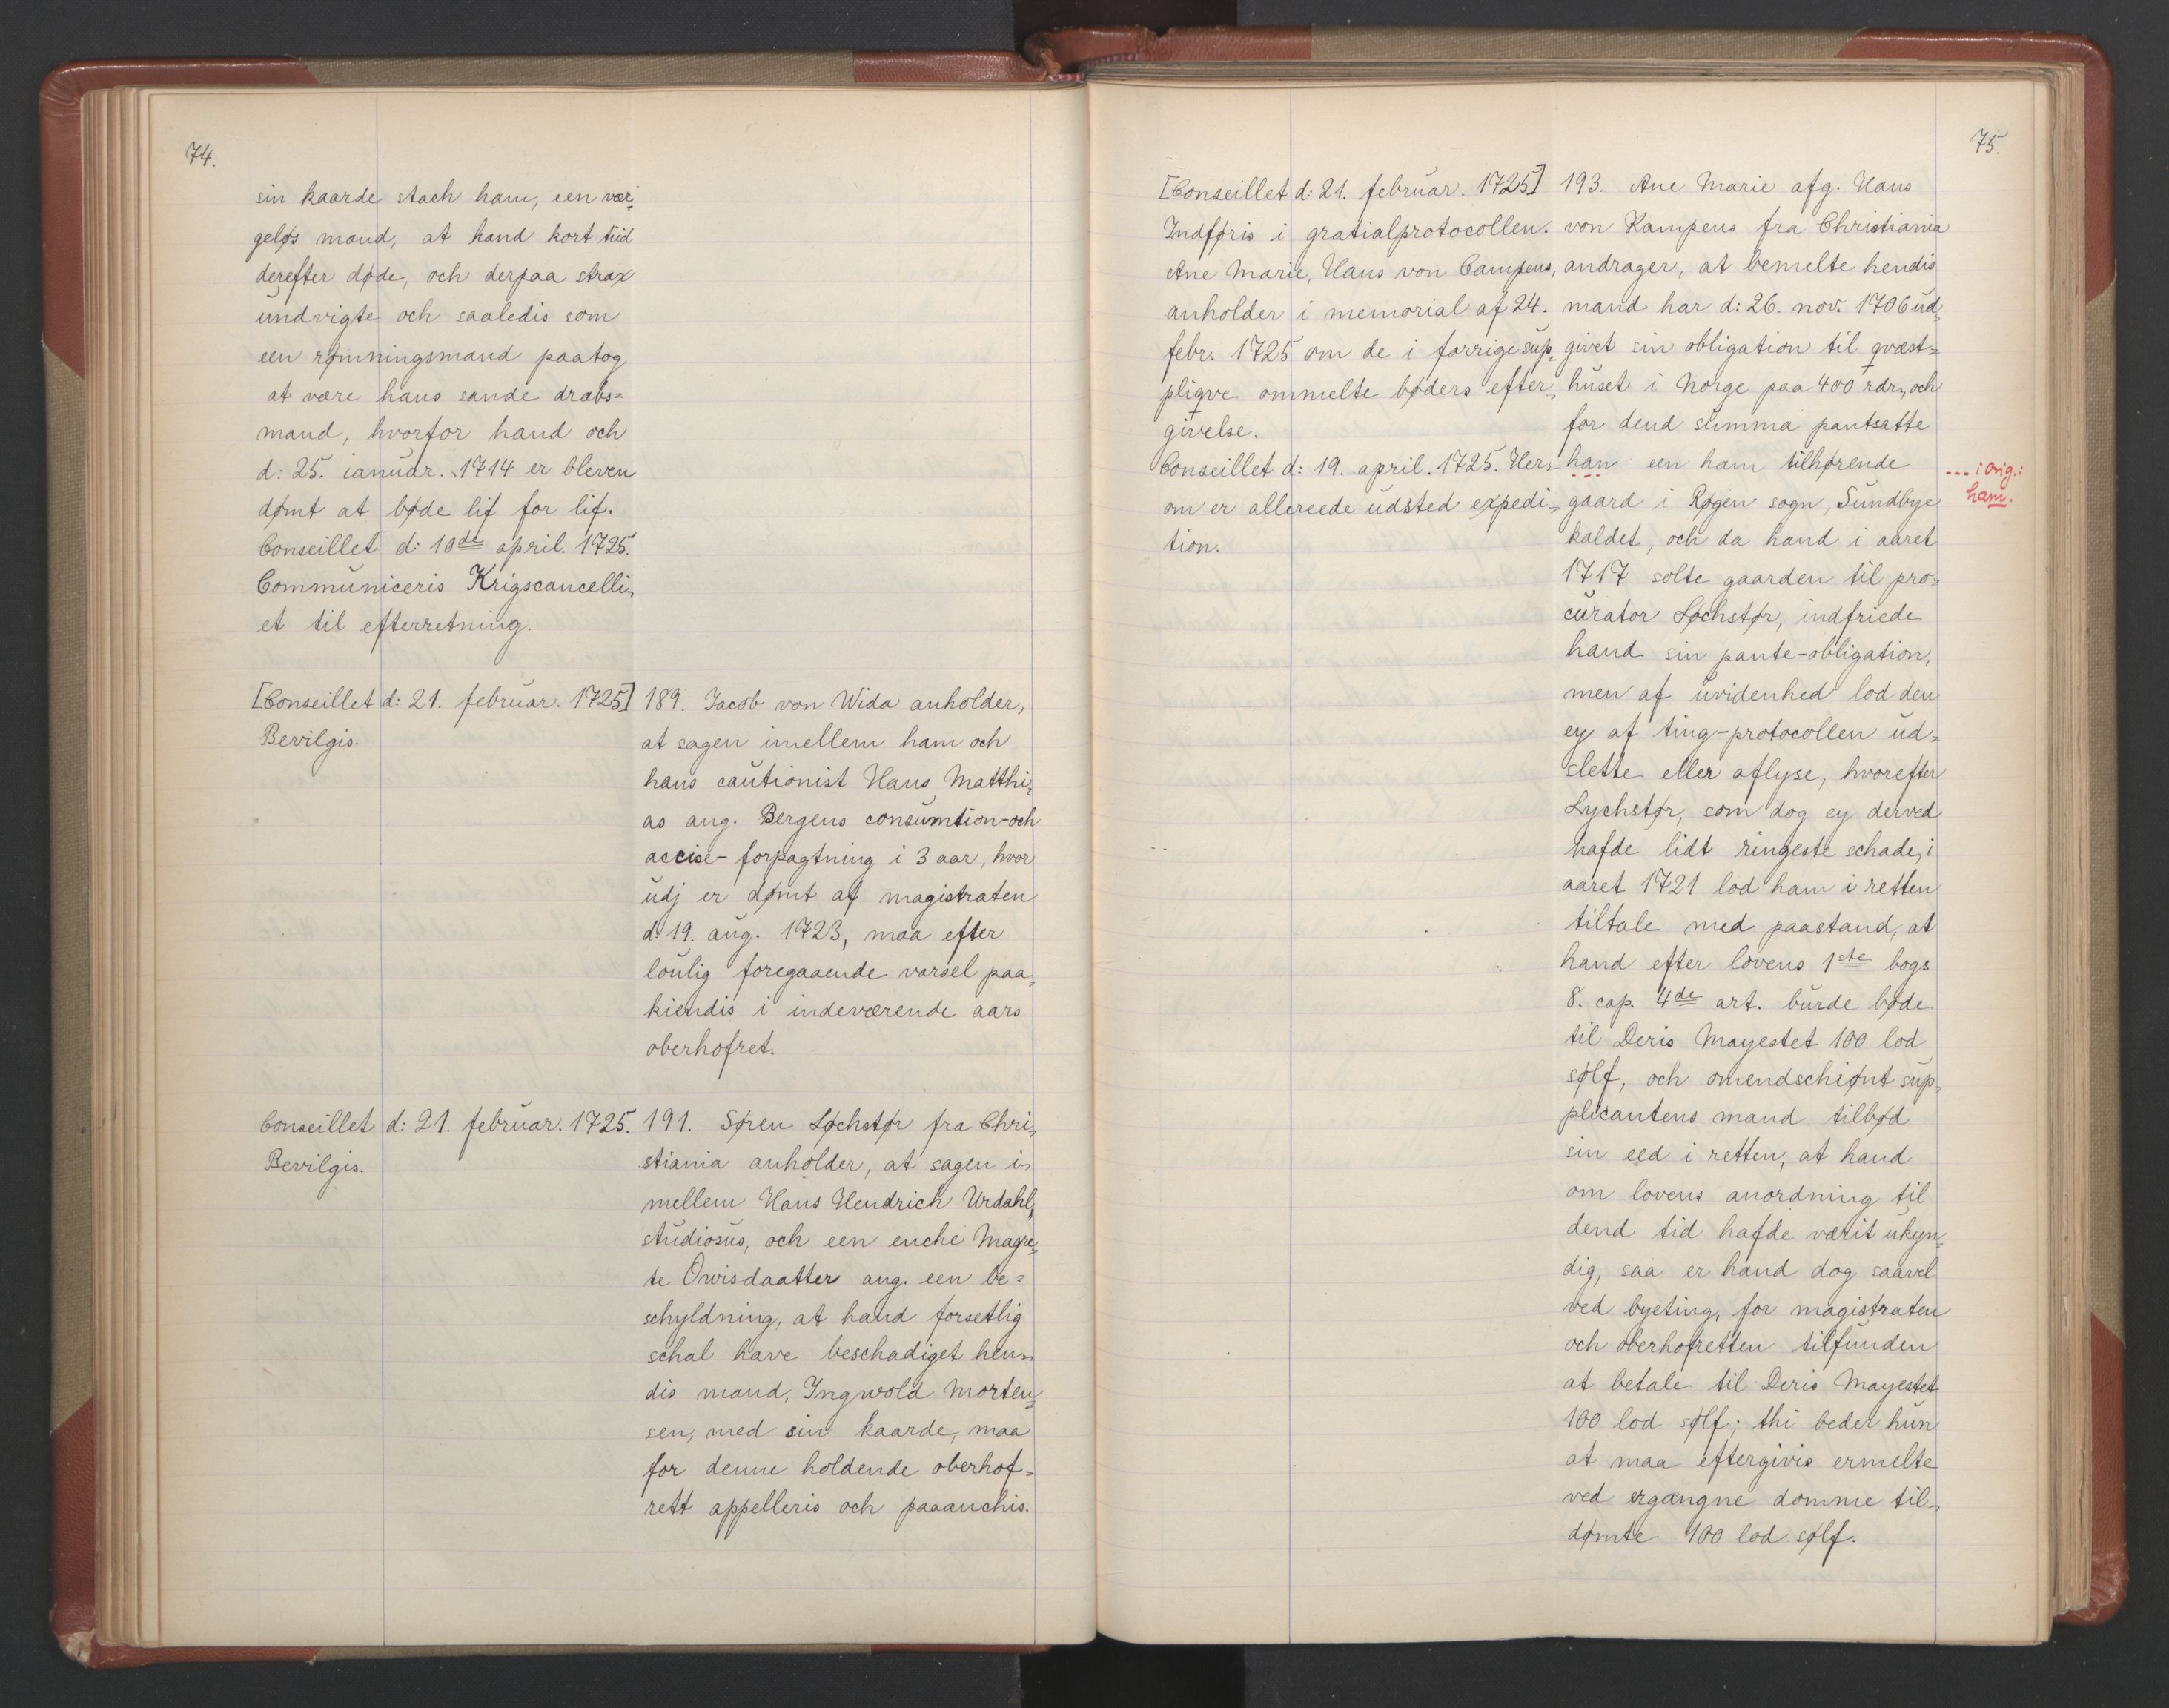 74.
sin kaarde stach ham, een vær¬
geløs mand, at hand kort tiid
derefter døde, och derpaa strax
undvigte och saaledis som
een rømningsmand paatog
at være hans sande drabs=
mand, hvorfor hand och
d: 25. ianuar. 1714 er bleven
dømt at bøde lif for lif.
Conseillet d: 10de april. 1725.
Communiceris Krigscancelli¬
et til efterretning.
[Conseillet d: 21. februar. 1725]
Bevilgis.
189. Jacob von Wida anholder,
at sagen imellem ham och
hans cautionist Hans Matthi¬
as ang. Bergens consumtion- och
accise-forpagtning i 3 aar, hvor
udj er dømt af magistraten
d: 19. aug. 1723, maa efter
loulig foregaaende varsel paa¬
kiendis i indeværende aars
oberhofret.
Conseillet d: 21. februar. 1725.
Bevilgis.
191. Søren Løchstør fra Chri¬
stiania anholder, at sagen i¬
mellem Hans Hendrich Urdahl,
studiosus, och een enche Magre¬
te Owisdaatter ang. een be=
schyldning, at hand forsetlig
schal have beschadiget hen¬
dis mand, Ingwold Morten¬
sen, med sin kaarde, maa
for denne holdende oberhof=
rett appelleris och paaanchis.
75.
[Conseillet d: 21. februar. 1725]
Indføris i gratialprotocollen.
Ane Marie, Hans von Campens,
anholder i memorial af 24.
febr. 1725 om de i forrige sup¬
pliqve ommelte bøders efter¬
givelse.
Conseillet d: 19. april. 1725. Her¬
om er allereede udsted expedi¬
tion.
193. Ane Marie afg. Hans
von Kampens fra Christiania
andrager, at bemelte hendis
mand har d: 26. nov. 1706 ud¬
givet sin obligation til qvæst=
huset i Norge paa 400 rdr., och
for dend summa pantsatte
han een ham tilhørende
gaard i Røgen sogn, Sundbye
kaldet, och da hand i aaret
1717 solte gaarden til pro¬
curator Løchstør, indfriede
hand sin pante-obligation,
men af uvidenhed lod den
ey af ting-protocollen ud=
slette eller aflyse, hvorefter
Lychstør, som dog ey derved
hafde lidt ringeste schade, i
aaret 1721 lod ham i retten
tiltale med paastand, at
hand efter lovens 1ste bogs
8. cap. 4de art. burde bøde
til Deris Mayestet 100 lod
sølf, och omendschiønt sup¬
plicantens mand tilbød
sin eed i retten, at hand
om lovens anordning til
dend tid hafde værit ukyn¬
dig, saa er hand dog saavel
ved byeting, for magistraten
och oberhofretten tilfunden
at betale til Deris Mayestet
100 lod sølf; thi beder hun
at maa eftergivis ermelte
ved ergangne domme til¬
dømte 100 lod sølf.
--- i orig.:
ham.